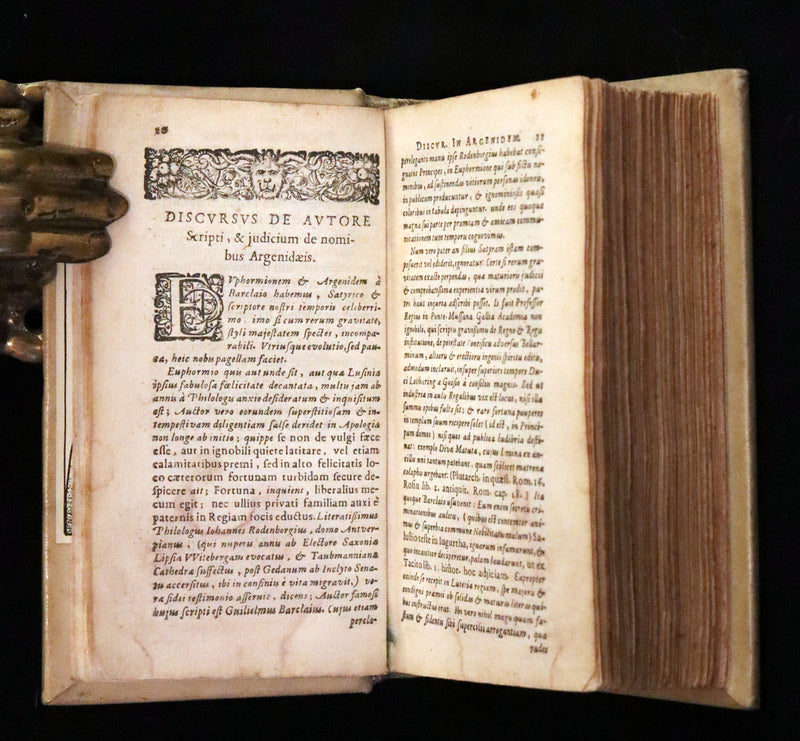 10
DISCVRSVS DE AVTORE
Scripti, & judicium de nomi-
bus Argenidæis.
EVphormionem & Argenidem à
Barclaio habemus, Satyrico &
scriptore nostri temporis celeberri-
mo. imo si cum rerum gravitate,
styli majestatem spectes, incompa-
rabili. Vtriusque evolutio, sed pau-
ca, heic nobis pagellam faciet.
Euphormio quis aut unde sit, aut quæ Lusinia
ipsius fabulosa fœlicitate decantata, multis jam ab
annis à Philologis anxie desideratum & inquisitum
est; Auctor vero eorundem superstitiosam & in-
tempestivam diligentiam salse deridet in Apologia
non longe ab initio; quippe se non de vulgi fæce
esse, aut in ignobili quiete latitare, vel etiam
calamitatibus premi, sed in alto felicitatis lo-
co cæterorum fortunam turbidam secure de-
spicere ait; Fortuna, inquiens, liberalius me-
cum egit; nec ullius privati familiam auxi è
paternis in Regiam focis eductus. Literatissimus
Philologus Iohannes Rodenborgius, domo Antver-
pianus, (qui nuperis annis ab Electore Saxoniæ
Lipsia VVitebergam evocatus, & Taubmannianæ
Cathedræ suffectus, post Gedanum ab Inclyto Sena-
tu accersitus, ibi in confiniis è vita migravit,) ve-
ra fidei testimonio asseruit, dicens; Auctor famosi
hujus scripti est Guilielmus Barclaius. Cujus etiam
perele-
DISCVR. IN ARGENIDEM. 11
perelegantis manu ipse Rodenborgius habebat consi-
gnatos Principes, in Euphormione qui sub fictis no-
minibus, ad sustinendas vitiorum personas idoneis,
in publicum producuntur, & ignominiosis quasi
coloribus in tabula depinguntur. unde eos quoque
magna sui parte per privatam & amicam commu-
nicationem tum temporis cognovimus.
Num vero pater an filius Satyram istam com-
posuerit vel ediderit, ignoratur. Certe si rerum gra-
vitatem exacte perpendas, quæ maturioris judicii
& comprobatissima experientia virum prodit, pa-
tri haus injuria adscribi posset. Is fuit Professor
Regius in Ponto-Mussana Gallia Academia non
ignobilis, qui scriptis gravissimis de Regno & Regis
institutione, de potestate
inius, altioris & erectioris ingenii spiritus editis,
admodum inclaruit, insuper superiori tempore Du-
ci Lotharing. & Guisio à consiliis magnis. Sed ut
industria in aulis Regalibus vix est locus, nisi illa
summis opibus fulta sit; & raro fortuna pauperes
in templum suum recipere solet (id est, in Princi-
pum domos) nisi quos ad publica ludibria desti-
nat: exemplo Divæ Matutæ, cujus limina ex an-
cillis uni tantum patebant, quam scilicet matronæ
colaphis urgebant: (Plutarch. in quæst. Rom. 16.
Rosin lib. 2. antiquit. Rom. cap. 18.) Ita
quoque Barclaio usuvenit: Eum enim secretis cri-
minationibus aulicis, (quibus est contemtor ani-
mus & superbia commune Nobilitatis malum) Sa-
lustio teste in Iugurtha, ignarum infamarunt, &
quo incautior deciperetur, palam laudarunt, ut ex
Tacito lib. 1. histor. hoc adjiciam. Eapropter
exinde se recepit in Lutetia regiam, spe majora &
condigni præmii ob solidas & maturas literas qui-
bus instructus erat. Ibi vero nihil magis quam fa-
stum & fidentis sibi supercilii arrogantiam, quæ
rudes